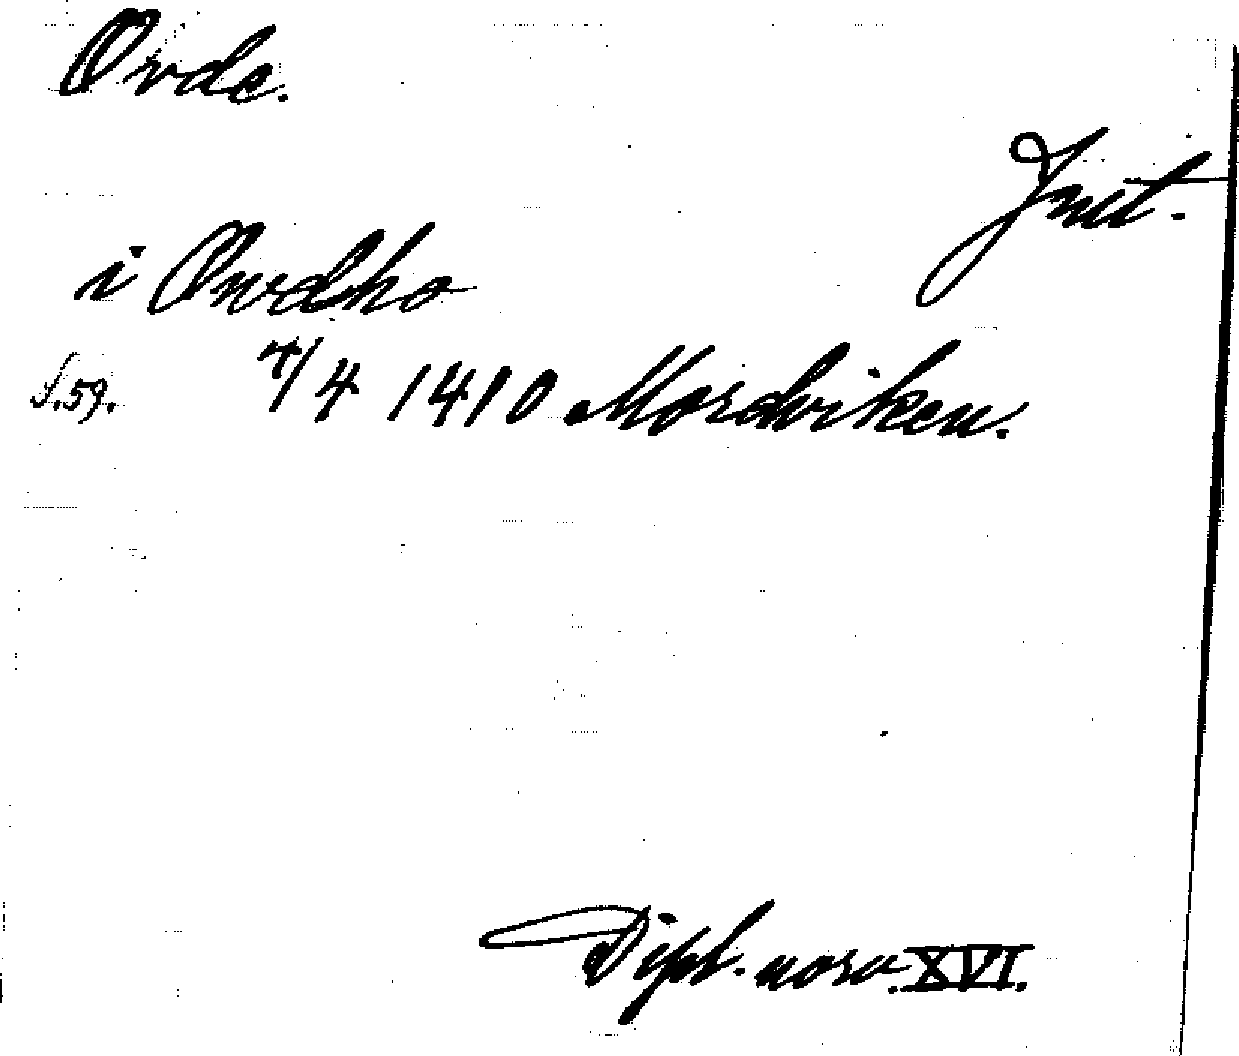 Ovde.
Jmt.
i Owdho
S.59. 4/4 1410 Mordviken.
Dipl. norv. XVI.